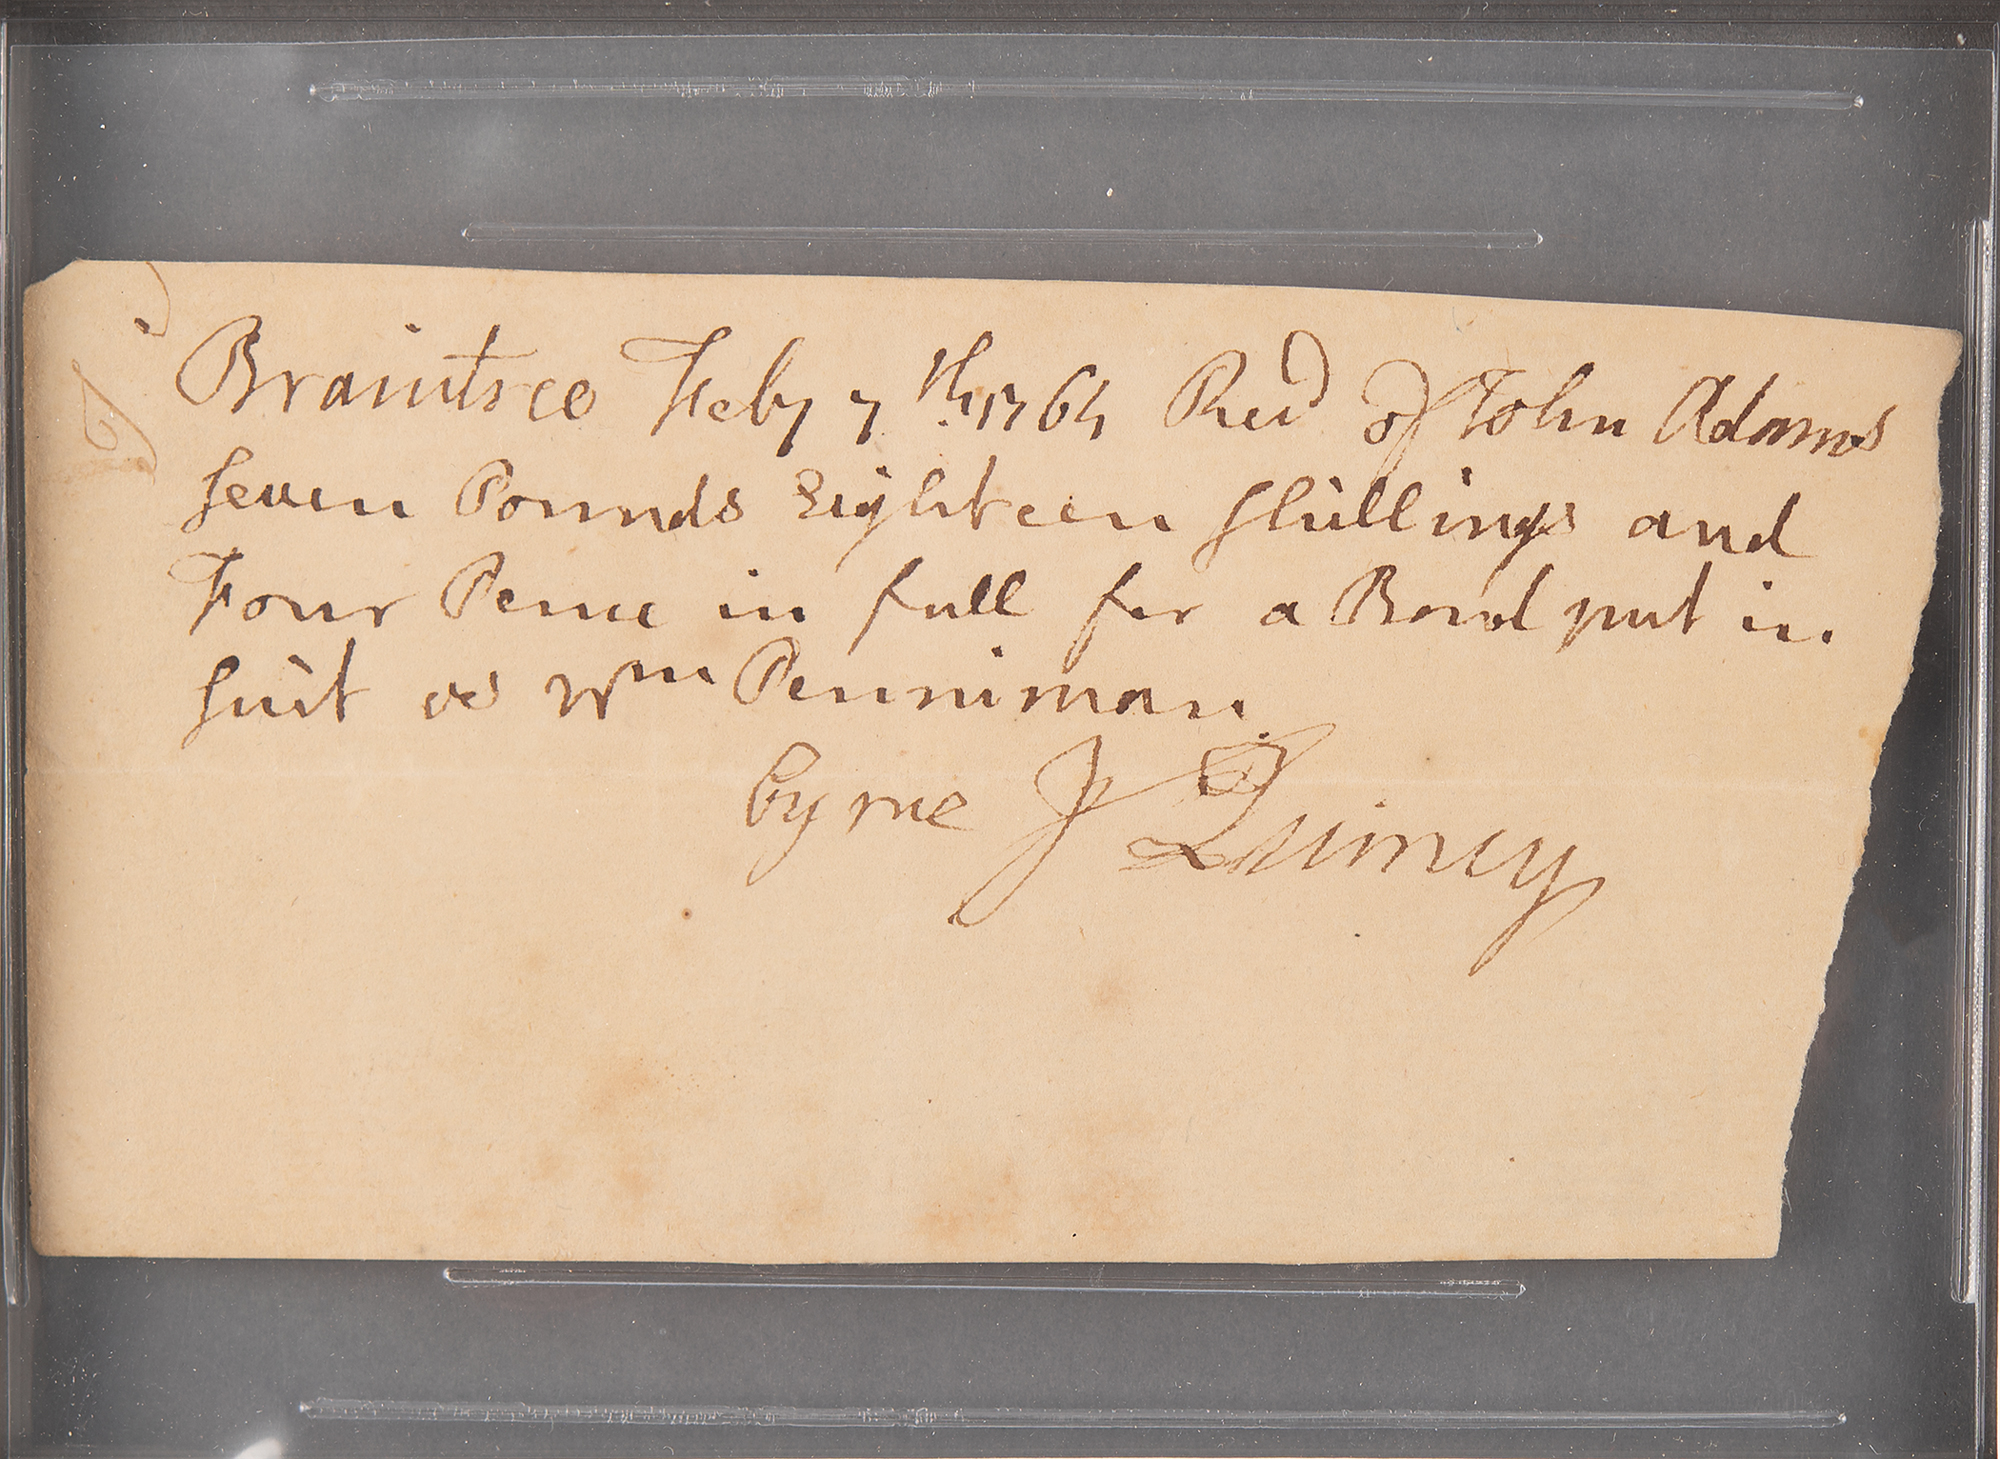 Braintree Feby 7th. 1764 Recd of John Adams
Seven Pounds Eighteen Shillings and
Four Pence in full for a Bond put in
Suit vs Wm Penniman.
by me J Quincy